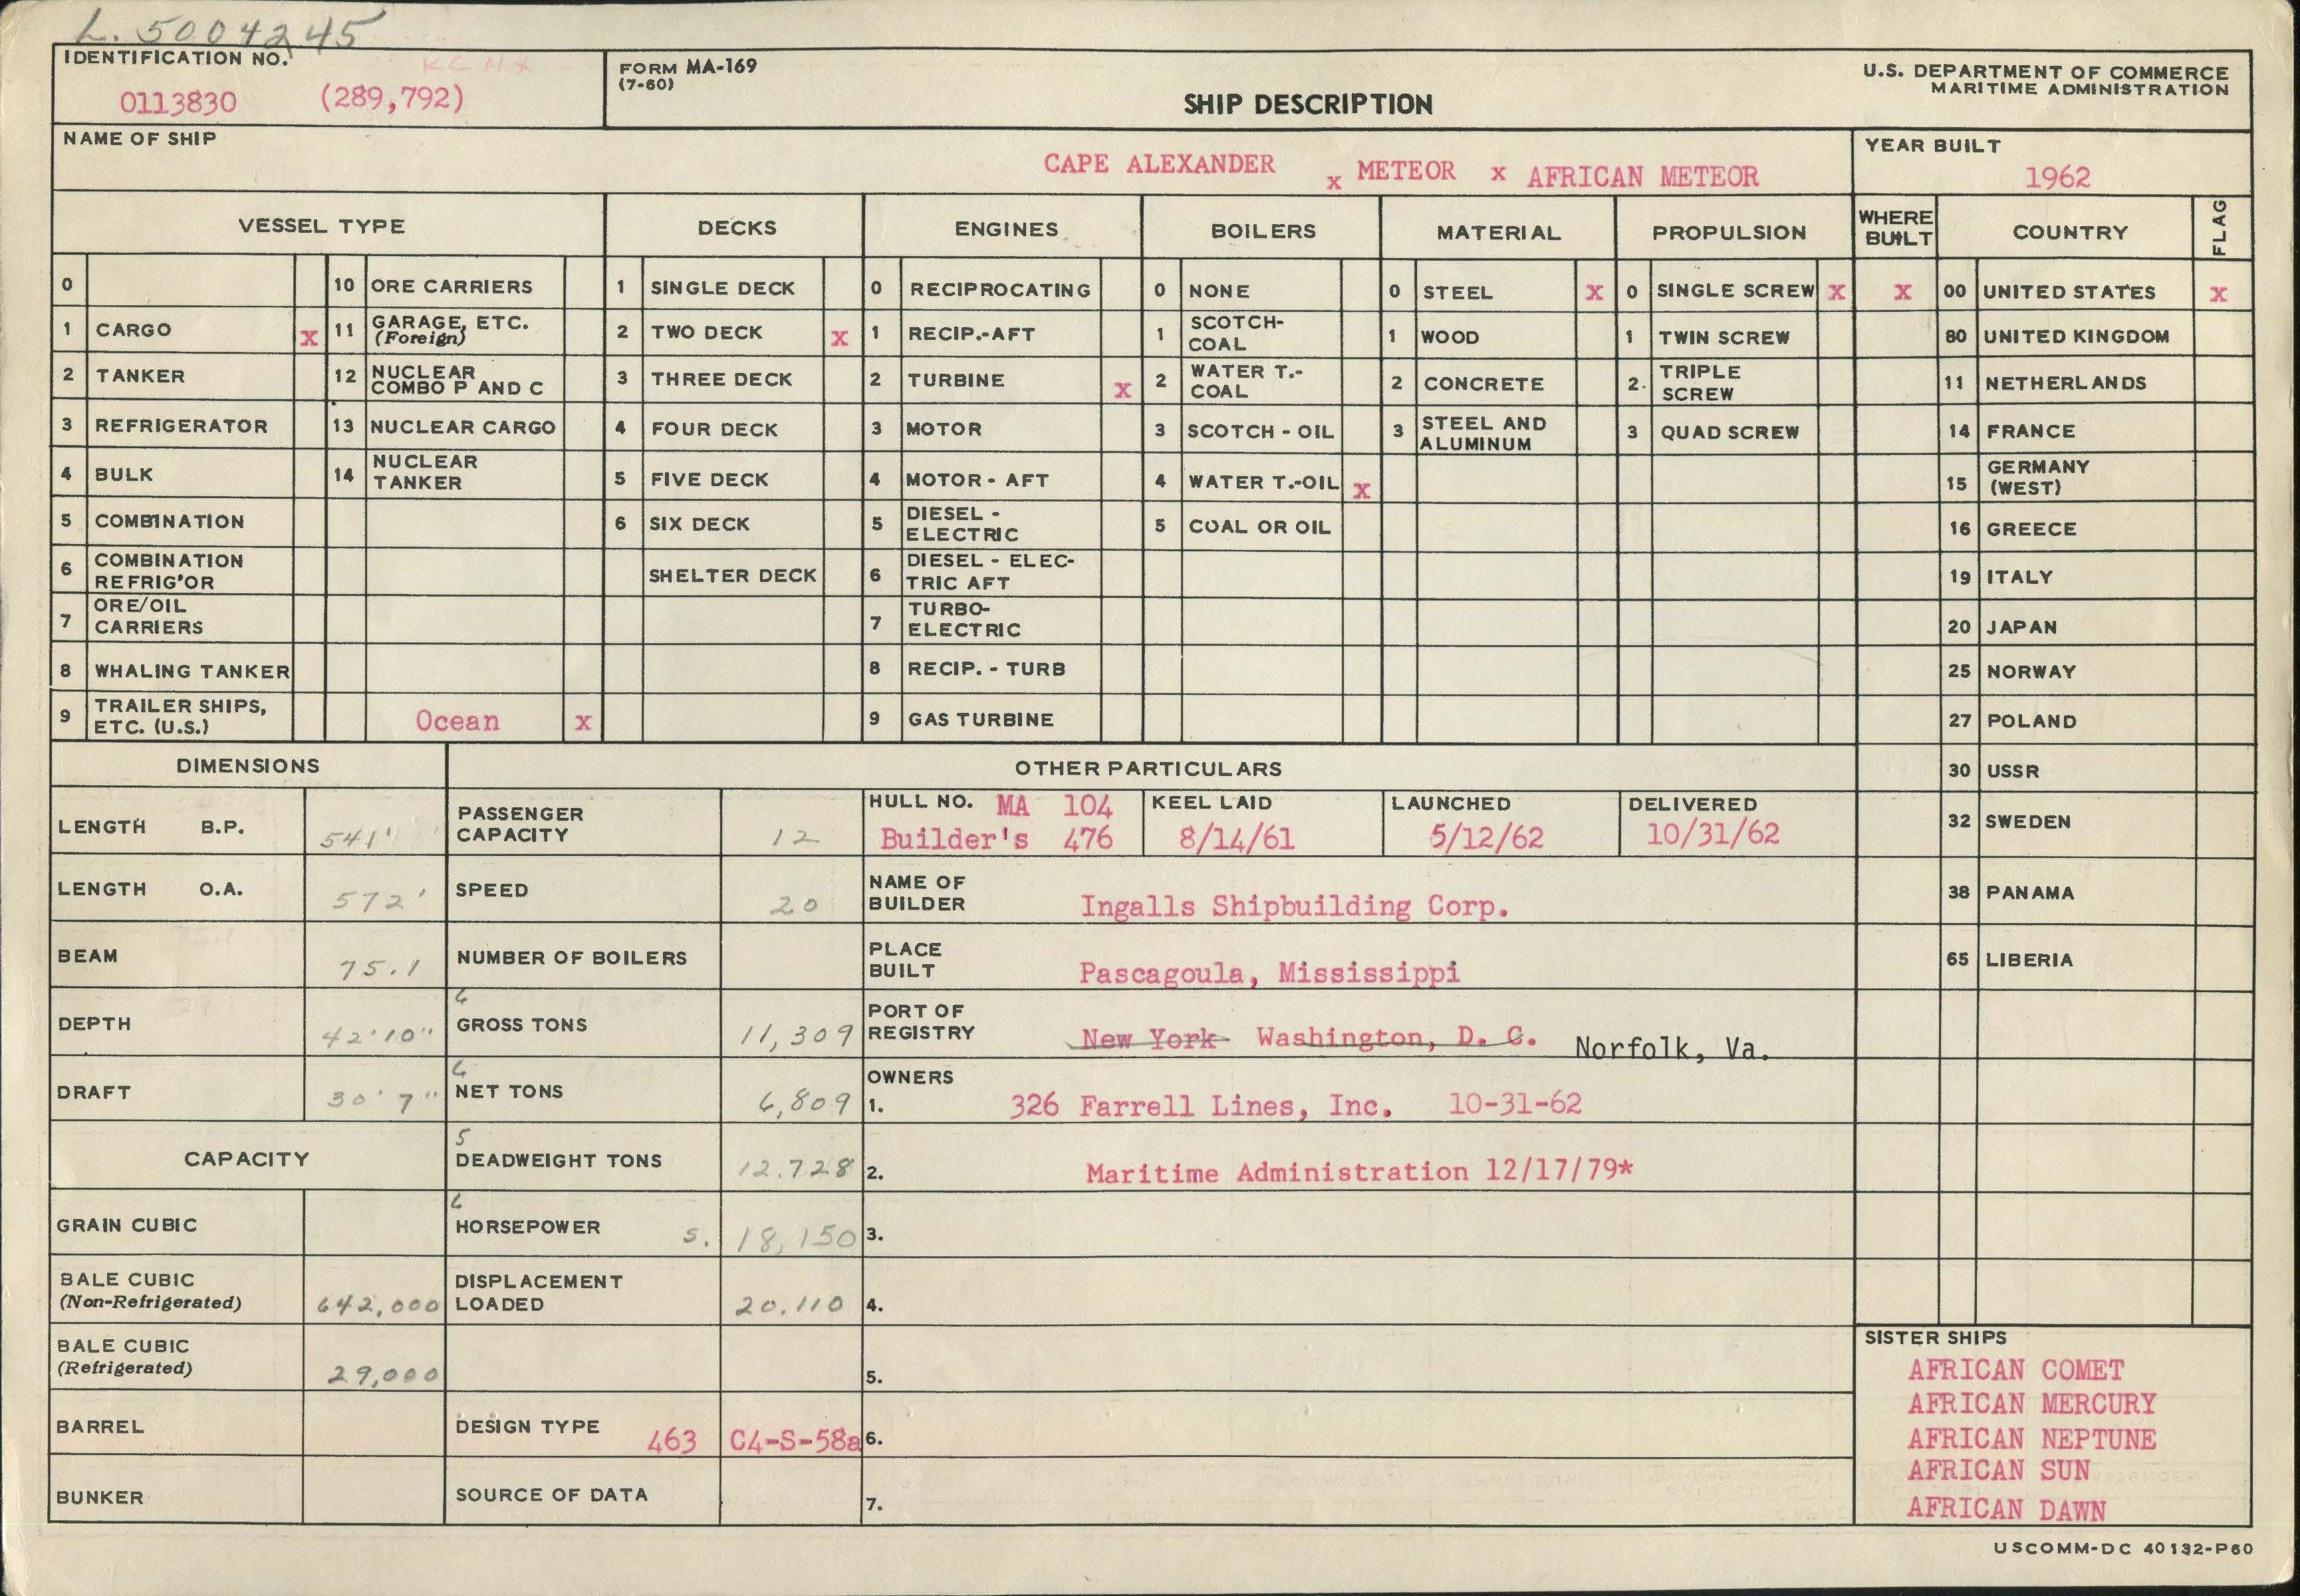 L. 5004245
IDENTIFICATION NO.
KCNX
0113830 (289,792)
FORM MA-169
(7-60)
SHIP DESCRIPTION
U.S. DEPARTMENT OF COMMERCE
MARITIME ADMINISTRATION
NAME OF SHIP
CAPE ALEXANDER x METEOR x AFRICAN METEOR
YEAR BUILT
1962
VESSEL TYPE DECKS ENGINES BOILERS MATERIAL PROPULSION WHERE BUILT COUNTRY FLAG
0 10 ORE CARRIERS 1 SINGLE DECK 0 RECIPROCATING 0 NONE 0 STEEL x 0 SINGLE SCREW x x 00 UNITED STATES x
1 CARGO x 11 GARAGE, ETC. (Foreign) 2 TWO DECK x 1 RECIP.-AFT 1 SCOTCH-COAL 1 WOOD 1 TWIN SCREW 80 UNITED KINGDOM
2 TANKER 12 NUCLEAR COMBO P AND C 3 THREE DECK 2 TURBINE x 2 WATER T.-COAL 2 CONCRETE 2. TRIPLE SCREW 11 NETHERLANDS
3 REFRIGERATOR 13 NUCLEAR CARGO 4 FOUR DECK 3 MOTOR 3 SCOTCH - OIL 3 STEEL AND ALUMINUM 3 QUAD SCREW 14 FRANCE
4 BULK 14 NUCLEAR TANKER 5 FIVE DECK 4 MOTOR - AFT 4 WATER T.-OIL x 15 GERMANY (WEST)
5 COMBINATION 6 SIX DECK 5 DIESEL - ELECTRIC 5 COAL OR OIL 16 GREECE
6 COMBINATION REFRIG'OR SHELTER DECK 6 DIESEL - ELECTRIC AFT 19 ITALY
7 ORE/OIL CARRIERS 7 TURBO-ELECTRIC 20 JAPAN
8 WHALING TANKER 8 RECIP. - TURB 25 NORWAY
9 TRAILER SHIPS, ETC. (U.S.) Ocean x 9 GAS TURBINE 27 POLAND
DIMENSIONS OTHER PARTICULARS 30 USSR
LENGTH B.P. 541' PASSENGER CAPACITY 12 HULL NO. MA 104 Builder's 476 KEEL LAID 8/14/61 LAUNCHED 5/12/62 DELIVERED 10/31/62 32 SWEDEN
LENGTH O.A. 572' SPEED 20 NAME OF BUILDER Ingalls Shipbuilding Corp. 38 PANAMA
BEAM 75.1 NUMBER OF BOILERS PLACE BUILT Pascagoula, Mississippi 65 LIBERIA
DEPTH 42'10" 6 GROSS TONS 11,309 PORT OF REGISTRY New York Washington, D. C. Norfolk, Va.
DRAFT 30'7" 6 NET TONS 6,809 OWNERS 1. 326 Farrell Lines, Inc. 10-31-62
CAPACITY 5 DEADWEIGHT TONS 12.728 2. Maritime Administration 12/17/79*
GRAIN CUBIC 6 HORSEPOWER S. 18,150 3.
BALE CUBIC (Non-Refrigerated) 642,000 DISPLACEMENT LOADED 20,110 4.
BALE CUBIC (Refrigerated) 29,000 5.
BARREL DESIGN TYPE 463 C4-S-58a 6.
BUNKER SOURCE OF DATA 7.
SISTER SHIPS
AFRICAN COMET
AFRICAN MERCURY
AFRICAN NEPTUNE
AFRICAN SUN
AFRICAN DAWN
USCOMM-DC 40132-P60